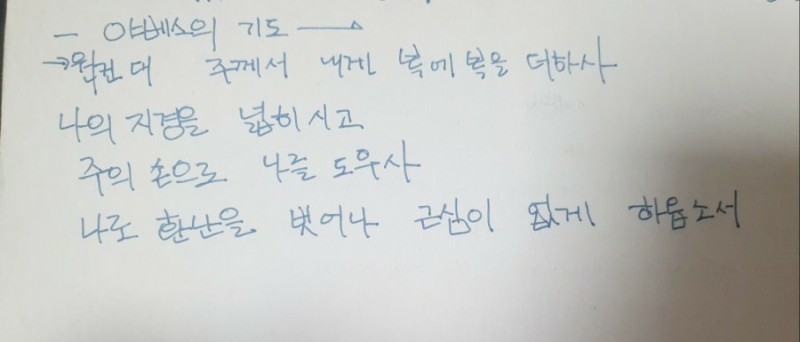 —야베스의 기도 →
→ 원컨대 주께서 내게 복에 복을 더하사
나의 지경을 넓히시고
주의 손으로 나를 도우사
나로 환난을 벗어나 근심이 없게 하옵소서